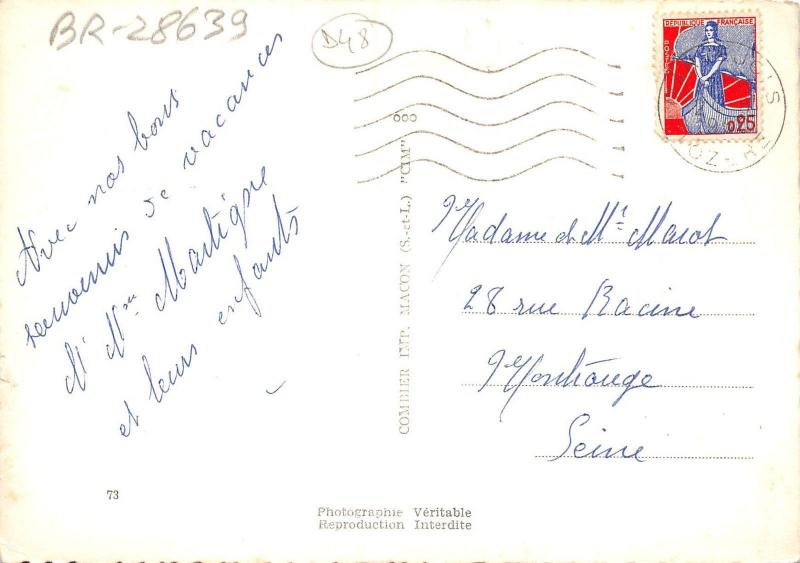 BR-28639
D48
Avec nos bons
souvenirs de vacances
Mr Mme Martigne
et leurs enfants
COMBIER IMP. MACON (S.-et-L.) "CIM"
REPUBLIQUE FRANÇAISE
POSTES
0,25
LOZERE
Madame et Mr Marot
28 rue Racine
Montrouge
Seine
73
Photographie Véritable
Reproduction Interdite